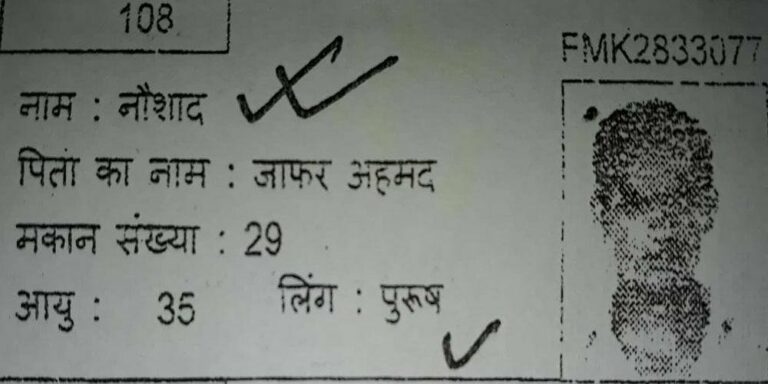 108
FMK2833077
नाम : नौशाद
पिता का नाम : जाफर अहमद
मकान संख्या : 29
आयु : 35 लिंग : पुरूष